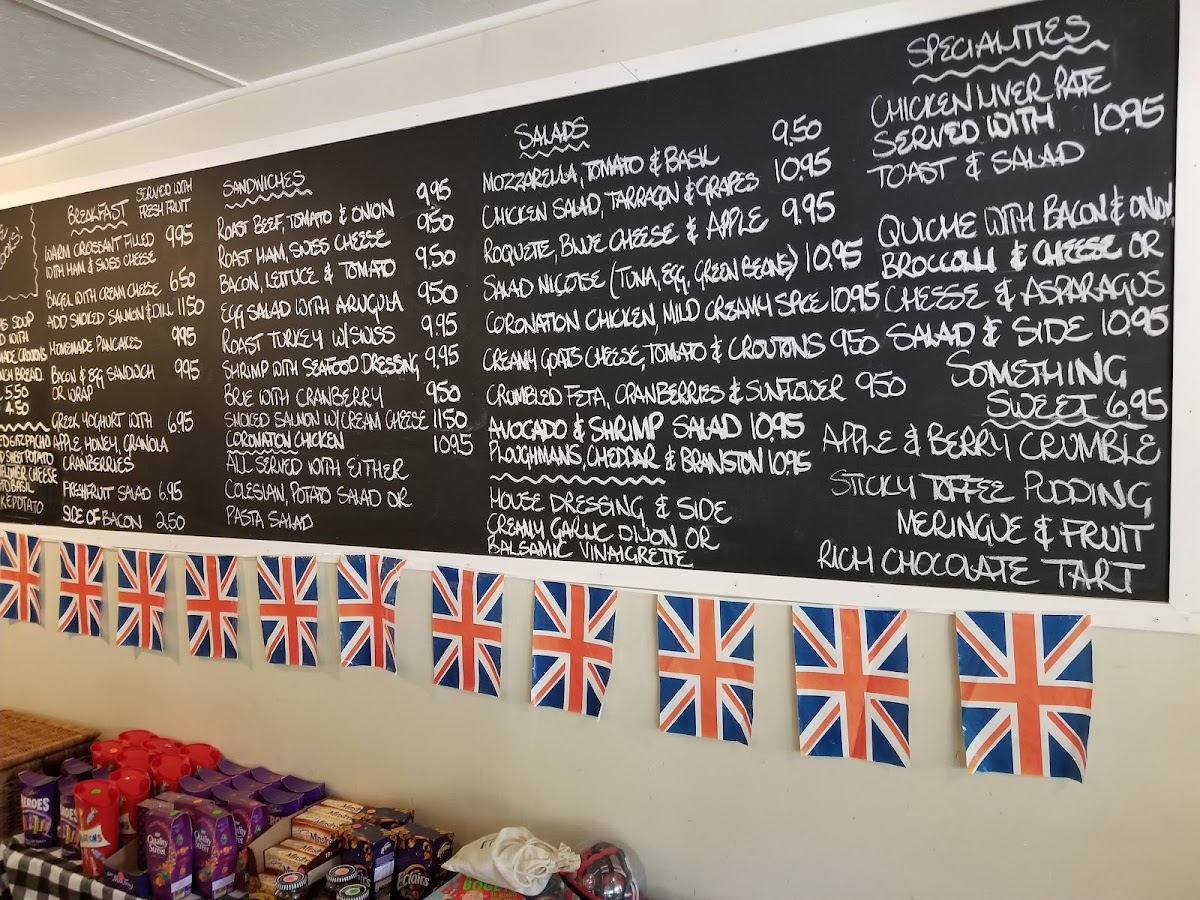 AS SOUP
D WITH
MADE CROUTONS
NCH BREAD
5.50
4.50
SWEET POTATO
FLOWER CHEESE
TO BASIL
KED POTATO
BREAKFAST SERVED WITH
FRESH FRUIT
WARM CROISSANT FILLED 9.95
WITH HAM & SWISS CHEESE
BAGEL WITH CREAM CHEESE 6.50
ADD SMOKED SALMON & DILL 11.50
HOMEMADE PANCAKES 9.95
BACON & EGG SANDWICH 9.95
OR WRAP
GREEK YOGHURT WITH 6.95
APPLE, HONEY, GRANOLA
CRANBERRIES
FRESH FRUIT SALAD 6.95
SIDE OF BACON 2.50
SANDWICHES
ROAST BEEF, TOMATO & ONION 9.95
ROAST HAM, SWISS CHEESE 9.50
BACON, LETUCE & TOMATO 9.50
EGG SALAD WITH ARUGULA 9.50
ROAST TURKEY W/SWISS 9.95
SHRIMP WITH SEAFOOD DRESSING 9.95
BRIE WITH CRANBERRY 9.50
SMOKED SALMON W/CREAM CHEESE 11.50
CORONATION CHICKEN 10.95
ALL SERVED WITH EITHER
COLESLAW, POTATO SALAD OR
PASTA SALAD
SALADS
MOZZARELLA, TOMATO & BASIL 9.50
CHICKEN SALAD, TARRAGON & GRAPES 10.95
ROQUETE, BLUE CHEESE & APPLE 9.95
SALAD NIÇOISE (TUNA, EGG, GREEN BEANS) 10.95
CORONATION CHICKEN, MILD CREAMY SPICE 10.95
CREAMY GOATS CHEESE, TOMATO & CROUTONS 9.50
CRUMBLED FETA, CRANBERRIES & SUNFLOWER 9.50
AVOCADO & SHRIMP SALAD 10.95
PLOUGHMANS, CHEDDAR & BRANSTON 10.95
HOUSE DRESSING & SIDE
CREAMY GARLIC DIJON OR
BALSAMIC VINAIGRETTE
SPECIALITIES
CHICKEN LIVER PATE
SERVED WITH 10.95
TOAST & SALAD
QUICHE WITH BACON & ONION
BROCCOLI & CHEESE OR
CHEESE & ASPARAGUS
SALAD & SIDE 10.95
SOMETHING
SWEET 6.95
APPLE & BERRY CRUMBLE
STICKY TOFFEE PUDDING
MERINGUE & FRUIT
RICH CHOCOLATE TART
HEROES
Quality Street
Quality Street
Eclairs